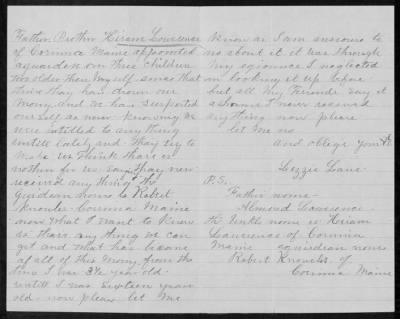 Father Brother Hiram Lawrence
of Corinna Maine appointed
a guarden on three children
two older than myself. sence that
time thay has drown our
mony and we has surported
our self as never knowing we
were intitled to any thing
untill lately and thay try to
make us think thare is
nothin for us, say thay never
received any thing the
Guidens name is Robert
Knowles Corinna Maine
now what I want to know
is thare any thing we can
get and what has became
of all of this mony from the
time I was 3½ year old.
untill I was sixteen years
old. now please let me
know as I am anxious to
no about it it was through
my ignounce I neglected
in looking it up before
but all my friends say it
a shame I never received
any thing now please
let me no
and oblige yours
Lizzie Lane
P.S.
Father name
Almond Lawrence
the Unkle name is Hiram
Lawrence of Corinna
Maine guirdian name
Robert Knowles of
Corinna Maine